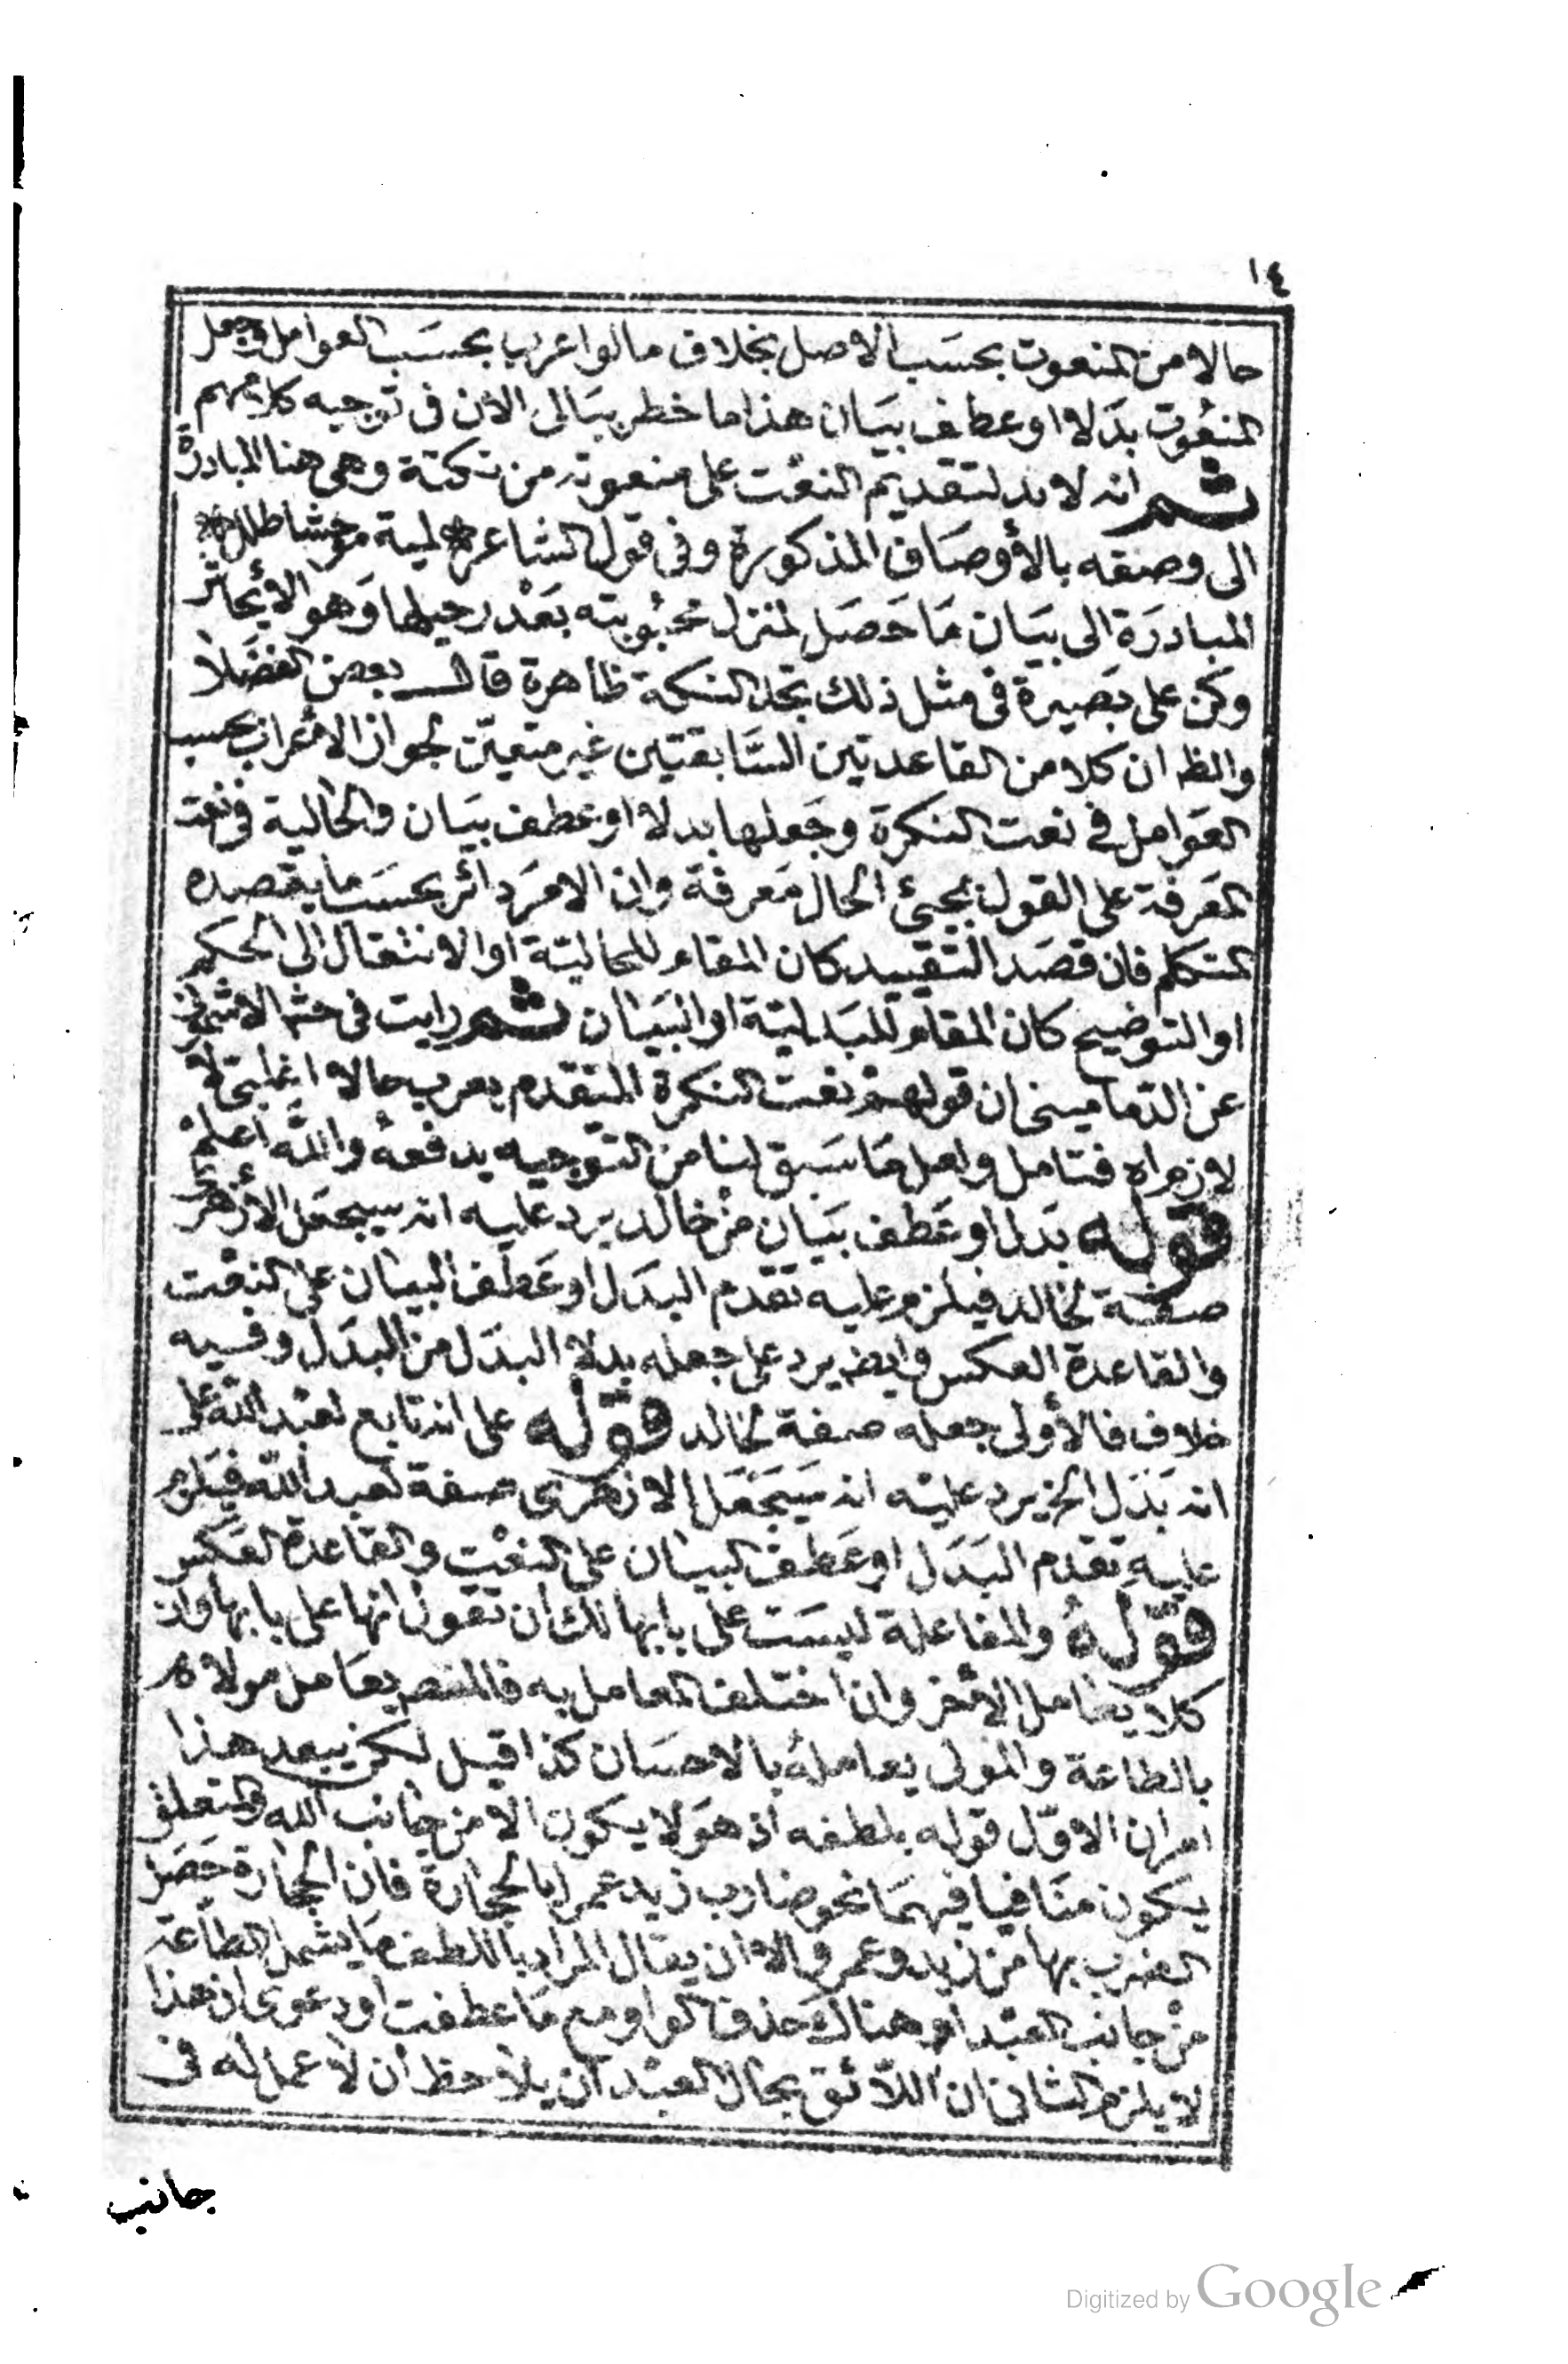 ١٤
حالا من المنعوت بحسب الاصل بخلاف ما لو اعرب بحسب العوامل وجعل
المنعوت بدلا او عطف بيان هذا ما خطر ببالى الان فى توجيه كلامهم
ثم انه لا بد لتقديم النعت على منعوته من نكتة وهى هنا المبادرة
الى وصفه بالأوصاف المذكورة وفى قول الشاعر * لمية موحشا طلل *
المبادرة الى بيان ما حصل لمنزل محبوبته بعد رحيلها وهو الايحاش
وكن على بصيرة فى مثل ذلك تجد النكتة ظاهرة قال بعض الفضلا
والظ ان كلا من القاعدتين السابقتين غير متعين لجواز الاعراب بحسب
العوامل فى نعت النكرة وجعلها بدلا او عطف بيان والحالية فى نعت
المعرفة على القول بمجئ الحال معرفة وان الامر دائر بحسب ما يقصده
المتكلم فان قصد التقييد كان المقام للحالية او الانتقال الى الحكم
او التوضيح كان المقام للبدلية او البيان ثم رايت فى حشى الاشمونى
عن الدمامينى ان قولهم نعت النكرة المتقدم يعرب حالا اغلبى لا
لازم اه فتامل ولعل ما سبق لنا من التوجيه يدفعه والله اعلم
قوله بدل او عطف بيان من خالد يرد عليه انه سيجعل الأزهرى
صفة لخالد فيلزم عليه تقدم البدل او عطف البيان على النعت
والقاعدة العكس وايض يرد على جعله بدلا البدل من البدل وفيه
خلاف فالأولى جعله صفة لخالد قوله على انه تابع لعبد الله على
انه بدل الخ يرد عليه انه سيجعل الازهرى صفة لعبد الله فيلزم
عليه تقدم البدل او عطف البيان على النعت والقاعدة العكس
قوله والمفاعلة ليست على بابها لك ان تقول انها على بابها وان
كلا يعامل الأخر وان اختلف المعامل به فالمنصر يعامل مولاه
بالطاعة والمولى يعامله بالاحسان كذا قيل لكن يبعد هذا
امران الاول قوله بلطفه اذ هو لا يكون الا من جانب الله والمتعلق
يكون منافيا فيهما نحو ضارب زيد عمرا بالحجارة فان الحجارة حصل
الضرب بها من زيد وعمرو الا ان يقال المراد باللطف ما يشمل الطاعة
من جانب العبد او هناك حذف الواو مع ما عطفت او دعوى ان هذا
لا يلزم الثانى ان اللائق بحال العبد ان يلاحظ ان لا عمل له فى
جانب
Digitized by Google